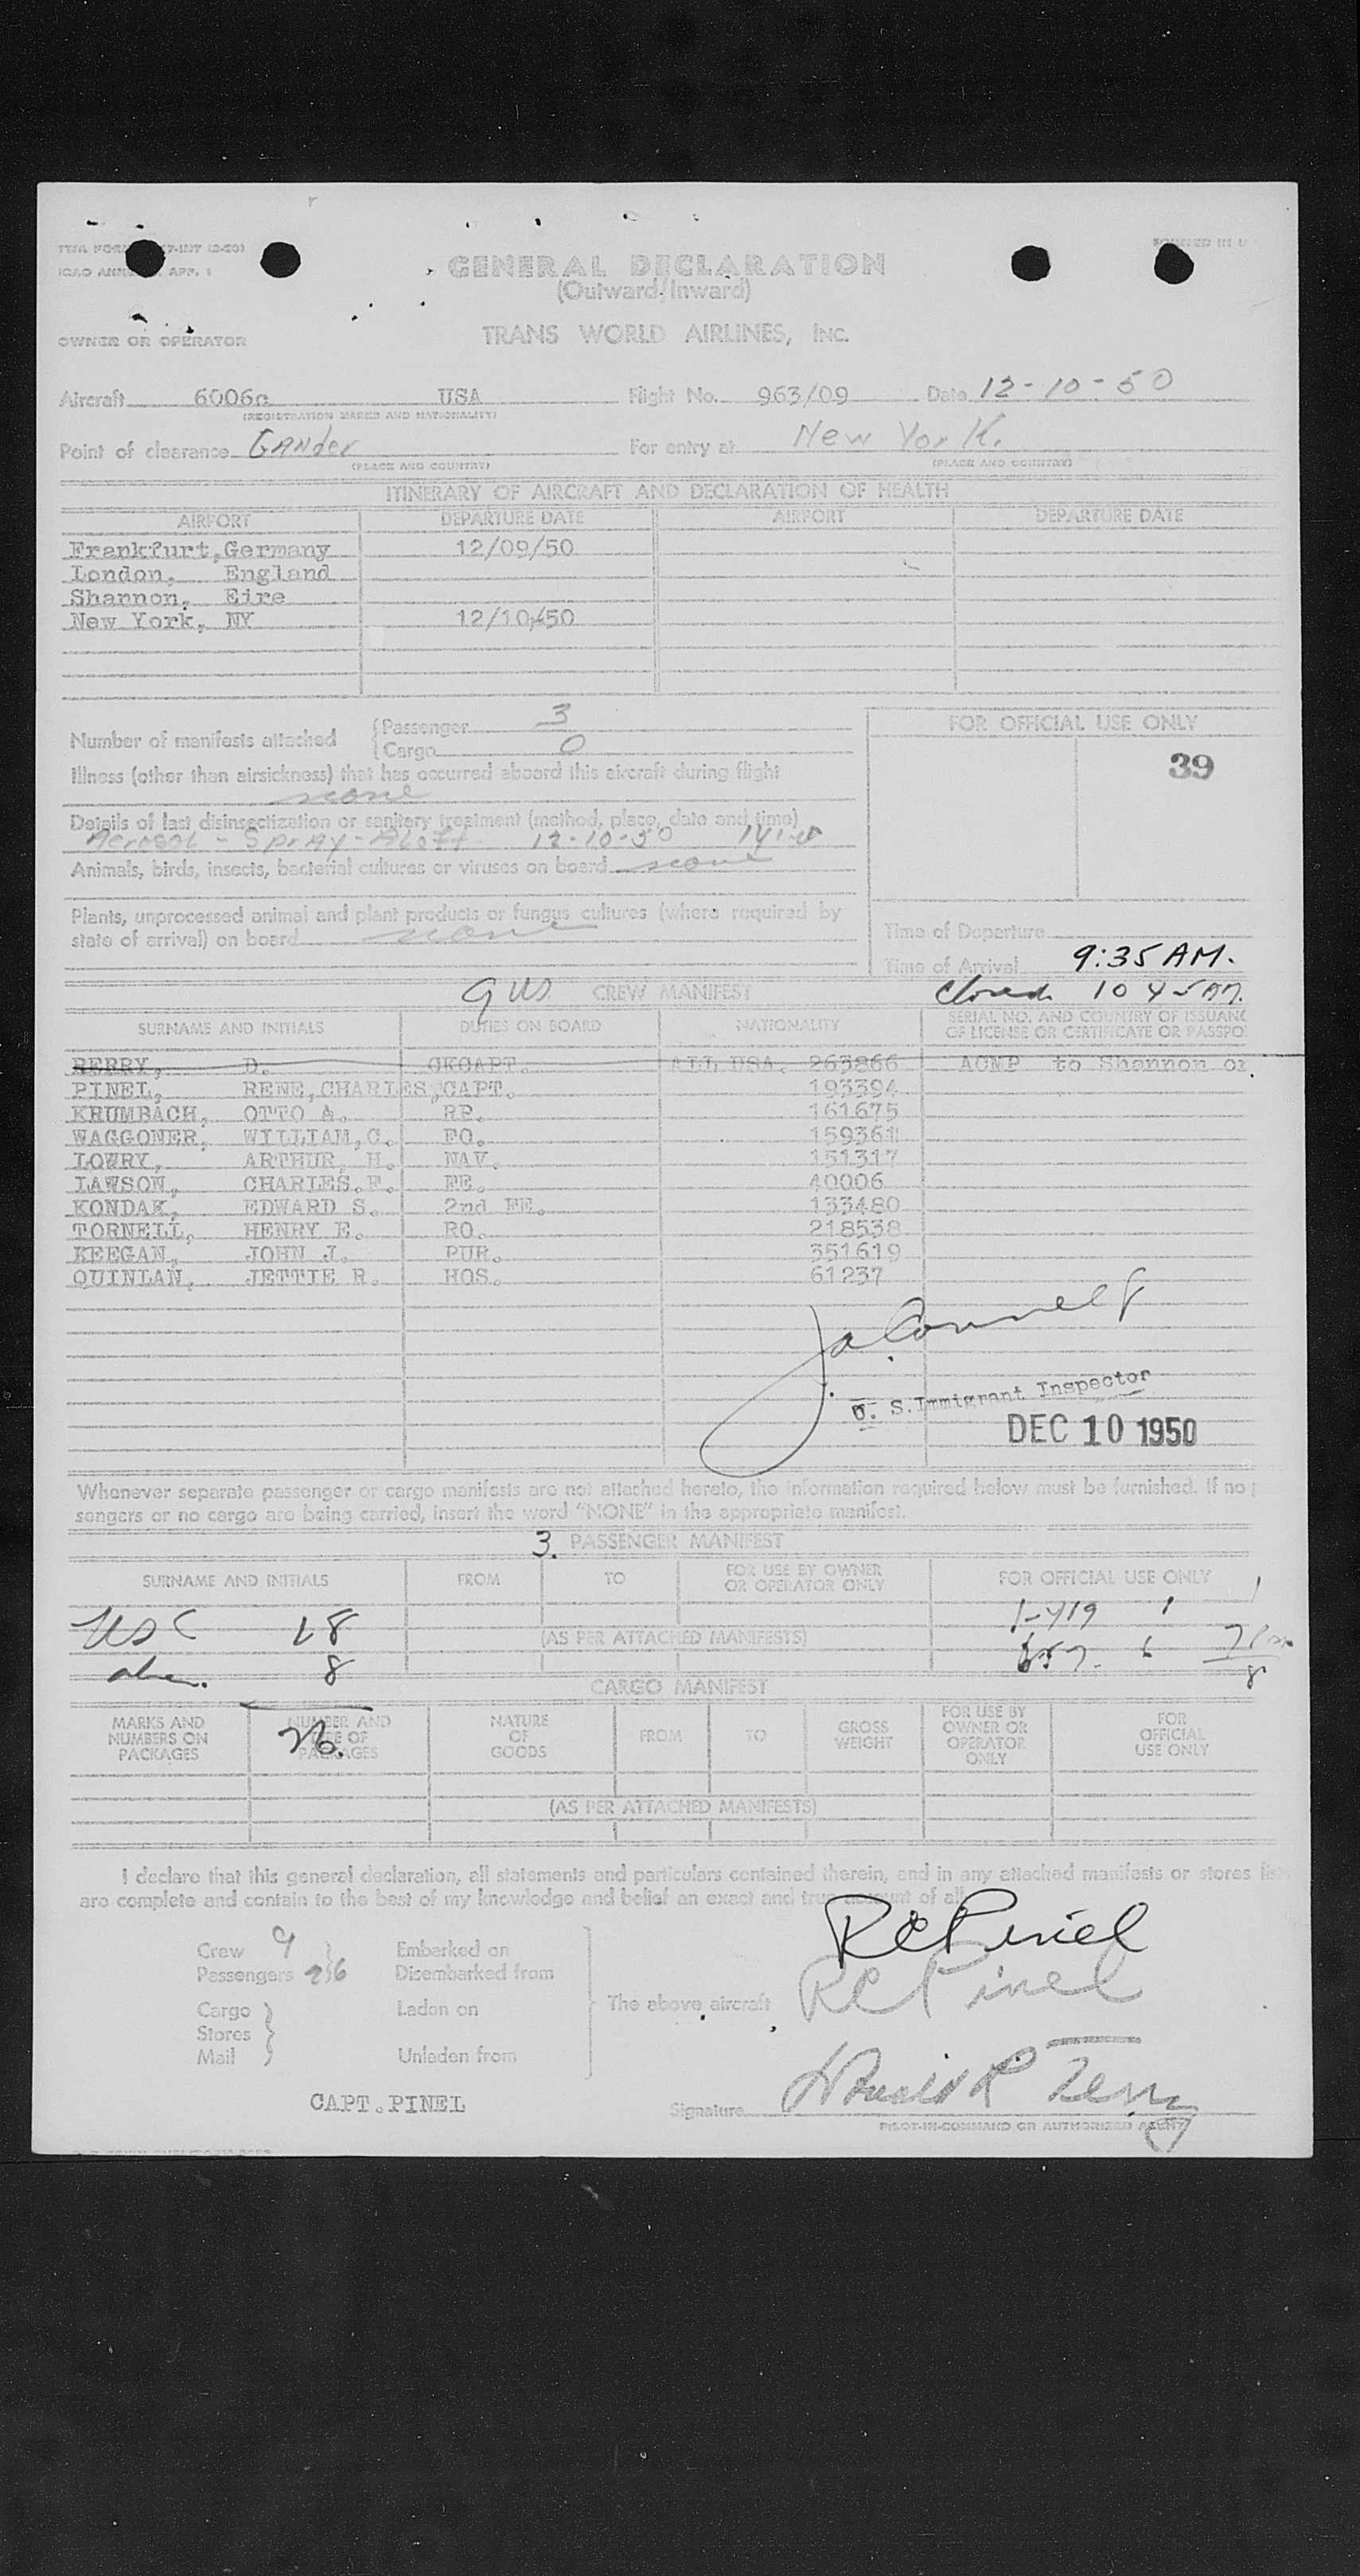 GENERAL DECLARATION
(Outward/Inward)
OWNER OR OPERATOR TRANS WORLD AIRLINES, INC.
Aircraft 6006c USA Flight No. 963/09 Date 12-10-50
(REGISTRATION MARKS AND NATIONALITY)
Point of clearance Gander For entry at New York.
(PLACE AND COUNTRY) (PLACE AND COUNTRY)
ITINERARY OF AIRCRAFT AND DECLARATION OF HEALTH
AIRPORT DEPARTURE DATE AIRPORT DEPARTURE DATE
Frankfurt,Germany 12/09/50
London, England
Shannon, Eire
New York, NY 12/10/50
Number of manifests attached
Passenger 3
Cargo 0
FOR OFFICIAL USE ONLY
39
Illness (other than airsickness) that has occurred aboard this aircraft during flight
none
Details of last disinsectization or sanitary treatment (method, place, date and time)
Aerosol - Spray - Aloft 12-10-50
Animals, birds, insects, bacterial cultures or viruses on board none
Plants, unprocessed animal and plant products or fungus cultures (where required by
state of arrival) on board none
Time of Departure
Time of Arrival 9:35 AM.
9 US CREW MANIFEST Closed 10 45 AM.
SURNAME AND INITIALS DUTIES ON BOARD NATIONALITY SERIAL NO. AND COUNTRY OF ISSUANC
OF LICENSE OR CERTIFICATE OR PASSPO
BERRY, D. CKCAPT. ALL USA. 263866 ACMP to Shannon or
PINEL, RENE,CHARLES,CAPT. 193394
KRUMBACH, OTTO A. RP. 161675
WAGGONER, WILLIAM,C. FO. 159361
LOWRY, ARTHUR, H. NAV. 151317
LAWSON, CHARLES.F. FE. 40006
KONDAK, EDWARD S. 2nd FE. 133480
TORNELL, HENRY E. RO. 218538
KEEGAN, JOHN J. PUR. 351619
QUINLAN, JETTIE R. HOS. 61237
U. S. Immigrant Inspector
DEC 10 1950
Whenever separate passenger or cargo manifests are not attached hereto, the information required below must be furnished. If no p
sengers or no cargo are being carried, insert the word "NONE" in the appropriate manifest.
3. PASSENGER MANIFEST
SURNAME AND INITIALS FROM TO FOR USE BY OWNER
OR OPERATOR ONLY FOR OFFICIAL USE ONLY
USC 18 1-419 1
(AS PER ATTACHED MANIFESTS)
8
CARGO MANIFEST
26.
MARKS AND
NUMBERS ON
PACKAGES
NUMBER AND
TYPE OF
PACKAGES
NATURE
OF
GOODS
FROM TO GROSS
WEIGHT
FOR USE BY
OWNER OR
OPERATOR
ONLY
FOR
OFFICIAL
USE ONLY
(AS PER ATTACHED MANIFESTS)
I declare that this general declaration, all statements and particulars contained therein, and in any attached manifests or stores lis
are complete and contain to the best of my knowledge and belief an exact and true account of all
RCPinel
RCPinel
Crew 9 Embarked on
Passengers 26 Disembarked from
Cargo Laden on The above aircraft
Stores
Mail Unladen from
CAPT.PINEL
Signature
PILOT-IN-COMMAND OR AUTHORIZED AGENT